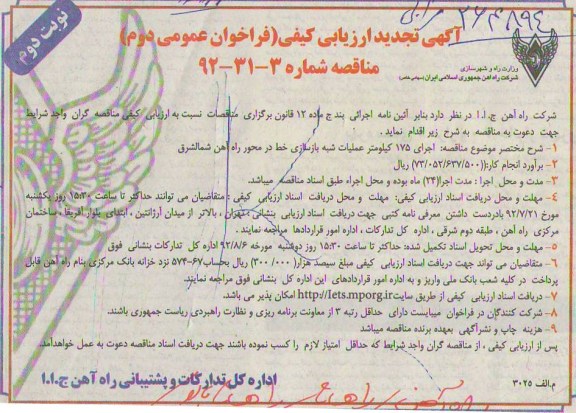 ۲۶۴۸۹۴
نوبت دوم
آگهی تجدید ارزیابی کیفی(فراخوان عمومی دوم)
مناقصه شماره ۳-۳۱-۹۲
وزارت راه و شهرسازی
شرکت راه آهن جمهوری اسلامی ایران (سهامی خاص)
شرکت راه آهن ج.ا.ا در نظر دارد بنابر آئین نامه اجرائی بند ج ماده ۱۲ قانون برگزاری مناقصات نسبت به ارزیابی کیفی مناقصه گران واجد شرایط
جهت دعوت به مناقصه به شرح زیر اقدام نماید .
۱- شرح مختصر موضوع مناقصه: اجرای ۱۷۵ کیلومتر عملیات شبه بازسازی خط در محور راه آهن شمالشرق
۲- برآورد انجام کار:(۷۳/۰۵۲/۶۳۷/۵۰۰) ریال
۳- مدت و محل اجرا : مدت اجرا(۲۴) ماه بوده و محل اجراء طبق اسناد مناقصه میباشد.
۴- مهلت و محل دریافت اسناد ارزیابی کیفی: مهلت و محل دریافت اسناد ارزیابی کیفی : متقاضیان می توانند حداکثر تا ساعت ۱۵:۳۰ روز یکشنبه
مورخ ۹۲/۷/۲۱ بادردست داشتن معرفی نامه کتبی جهت دریافت اسناد ارزیابی بنشانی :تهران ، بالاتر از میدان آرژانتین ، ابتدای بلوار آفریقا ، ساختمان
مرکزی راه آهن ، طبقه دوم شرقی ، اداره کل تدارکات ، اداره امور قراردادها مراجعه نمایند .
۵- مهلت و محل تحویل اسناد تکمیل شده: حداکثر تا ساعت ۱۵:۳۰ روز دوشنبه مورخه ۹۲/۸/۶ اداره کل تدارکات بنشانی فوق
۶- متقاضیان می تواند جهت دریافت اسناد ارزیابی کیفی مبلغ سیصد هزار( ۳۰۰/۰۰۰) ریال بحساب۶۷-۵۷۴ نزد خزانه بانک مرکزی بنام راه آهن قابل
پرداخت در کلیه شعب بانک ملی واریز و به اداره امور قراردادهای این اداره کل بنشانی فوق مراجعه نمایند.
۷- دریافت اسناد ارزیابی کیفی از طریق سایتhttp://Iets.mporg.ir امکان پذیر می باشد.
۸- شرکت کنندگان در فراخوان میبایست دارای حداقل رتبه ۳ از معاونت برنامه ریزی و نظارت راهبردی ریاست جمهوری باشند.
۹- هزینه چاپ و نشرآگهی بعهده برنده مناقصه میباشد
پس از ارزیابی کیفی ، از مناقصه گران واجد شرایط که حداقل امتیاز لازم را کسب نموده باشند جهت دریافت اسناد مناقصه دعوت به عمل خواهدآمد.
م.الف ۳۰۲۵
اداره کل تدارکات و پشتیبانی راه آهن ج.ا.ا